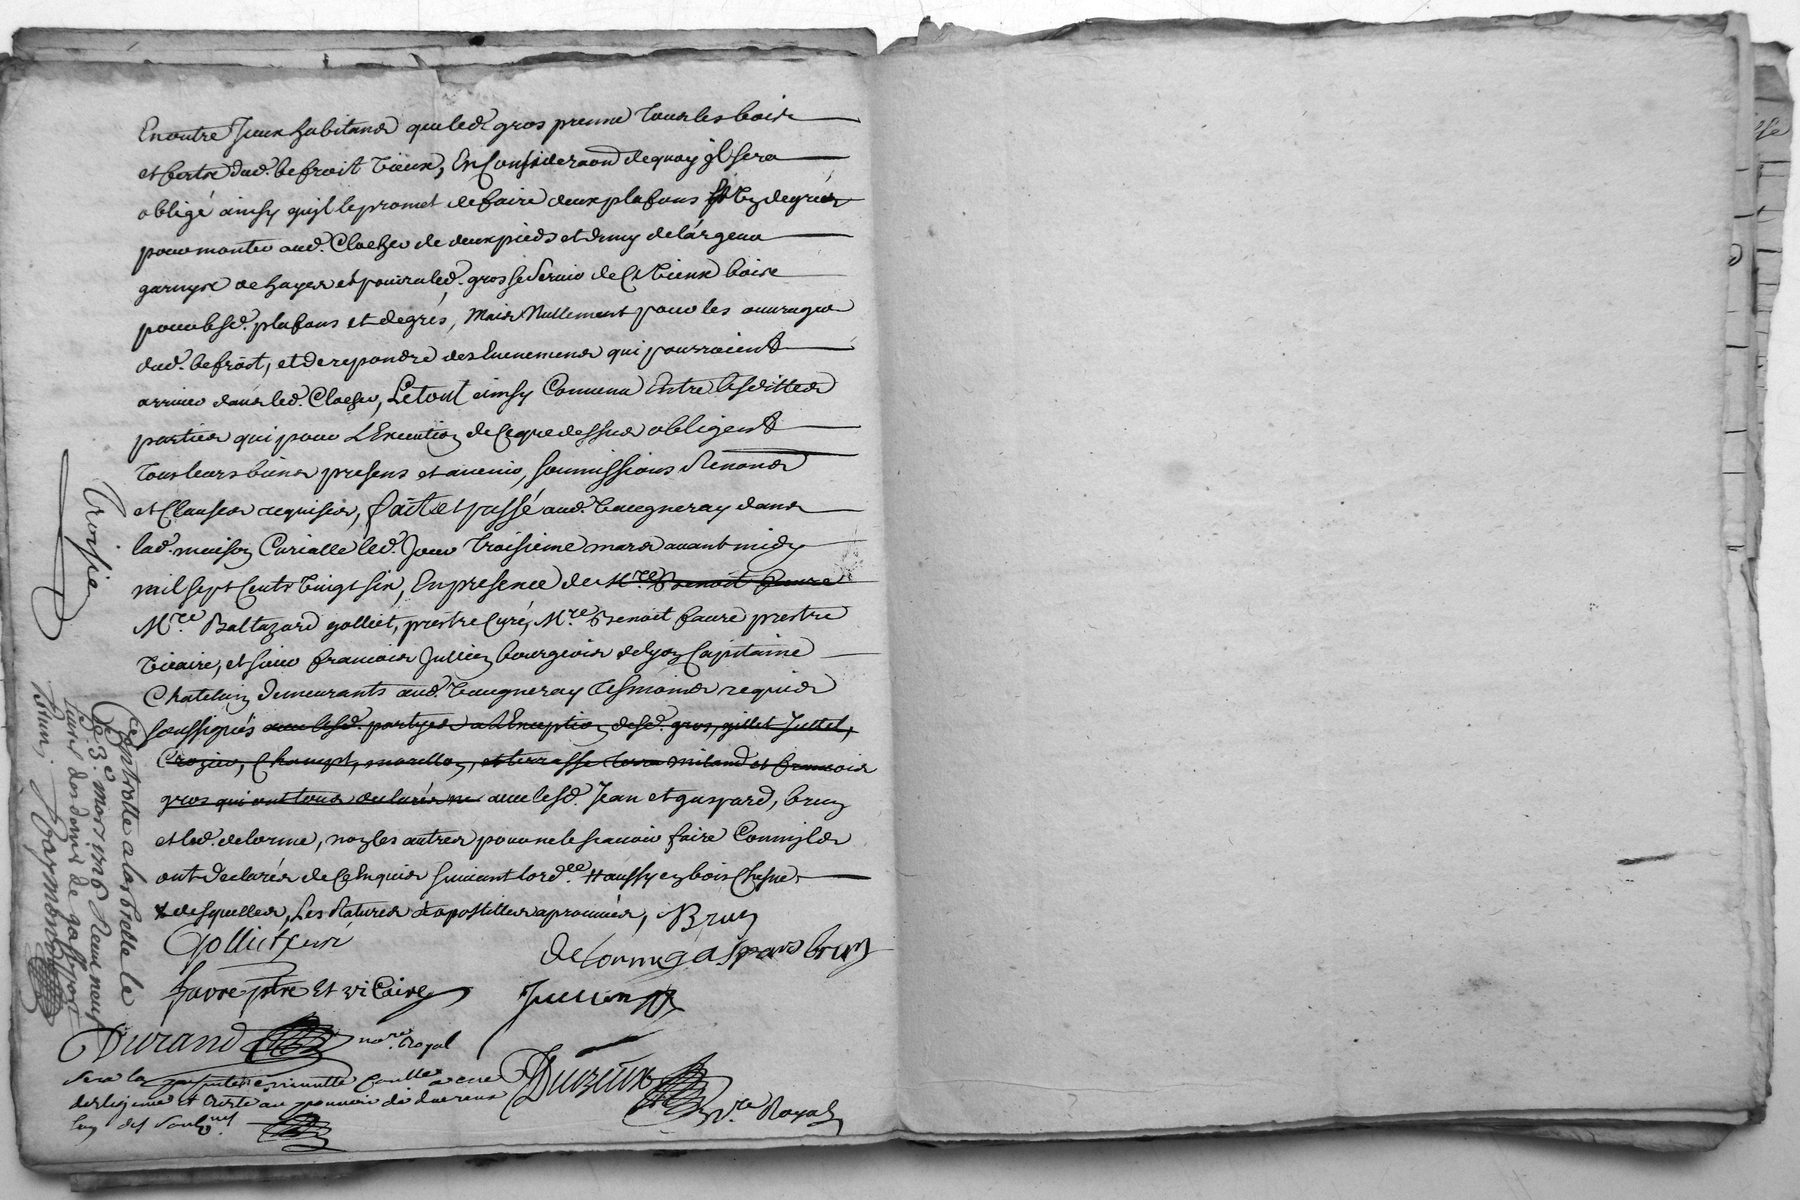 En outre Iceux habitans que led. gros prenne tous les bois
et fertre dud. befroit vieux, En Consideraon de quoy il sera
obligé ainsy qu'jl le promet de faire deux plafons et les degrés
pour monter aud. Clocher de deux pieds et demy de largeur
garnyse de hayes et pourra led. gros se servir de Ct vieux bois
pour lesd. plafons et degrés, Mais Nullement pour les ouvrages
dud. befroit, et de repondre des Evenemens qui pourroient
arriver dans led. Clocher, Le tout ainsy Convenu Entre lesdittes
parties qui pour L'Execution de Ce que dessus obligent
tous leurs biens presens et avenir, soumissions Renons
et Clauses requises, fait et passé aud. vaugneray dans
lad. maison Curialle led. Jour troisieme mars avant midy
mil sept Cents vingt six, En presence de Mre Benoit faure
Mre. Baltazard golliet, prestre Curé, Mre Benoit faure prestre
vicaire, et sieur francois Jullien bourgeois de lyon Capitaine
Chatelain demeurants aud. vaugneray tesmoins requis
soussignés avec lesd. partyes a L'Exception desd. gros, gillet Jullet,
Crozier, Champt, morellon, et terrasse miland et francois
gros qui ont tous declarés ne avec lesd. Jean et gaspard, brun
et led. delorme, non les autres pour ne le scavoir faire Comm'ils
ont declarés de Ce Enquis suivant lordce # aussy en bois Chesne
x desquelles, Les Ratures & apostilles aprouvées, Brun
Golliet curé
delorme gaspard brun
favre ptre Et viCaire
Jullien
Durand nore. Royal
Duzeux
nre. Royal
Troisie
Controllé a larbrelle le
3e mars 1726 Receu neuf